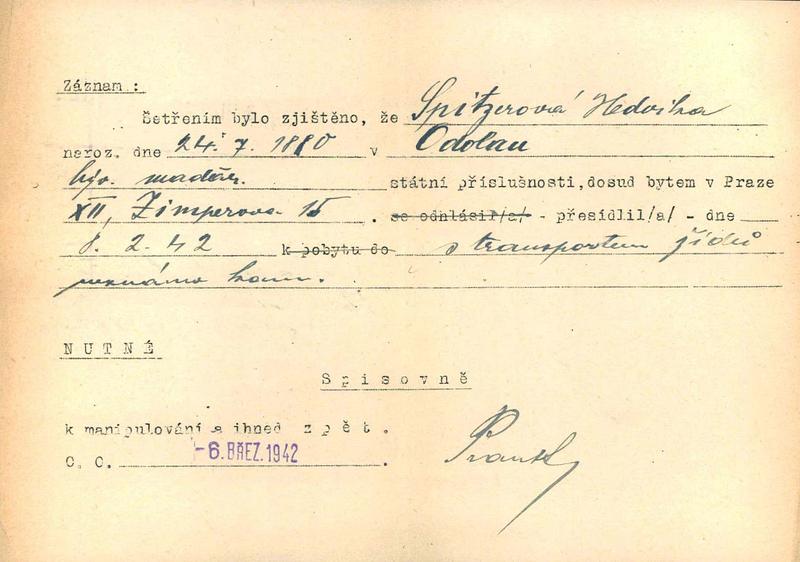 Záznam :
Šetřením bylo zjištěno, že Spitzerová Hedvika
naroz. dne 24. 7. 1880 v Odolau
býv. maďar. státní příslušnosti, dosud bytem v Praze
XII, Zimperova 15 . se odhlásil/a/ - přesídlil/a/ - dne
8. 2. 42 k pobytu do s transportem židů
neznámo kam.
NUTNÉ
Spisovně
k manipulování a ihned zpět.
O. O. - 6. BŘEZ. 1942 .